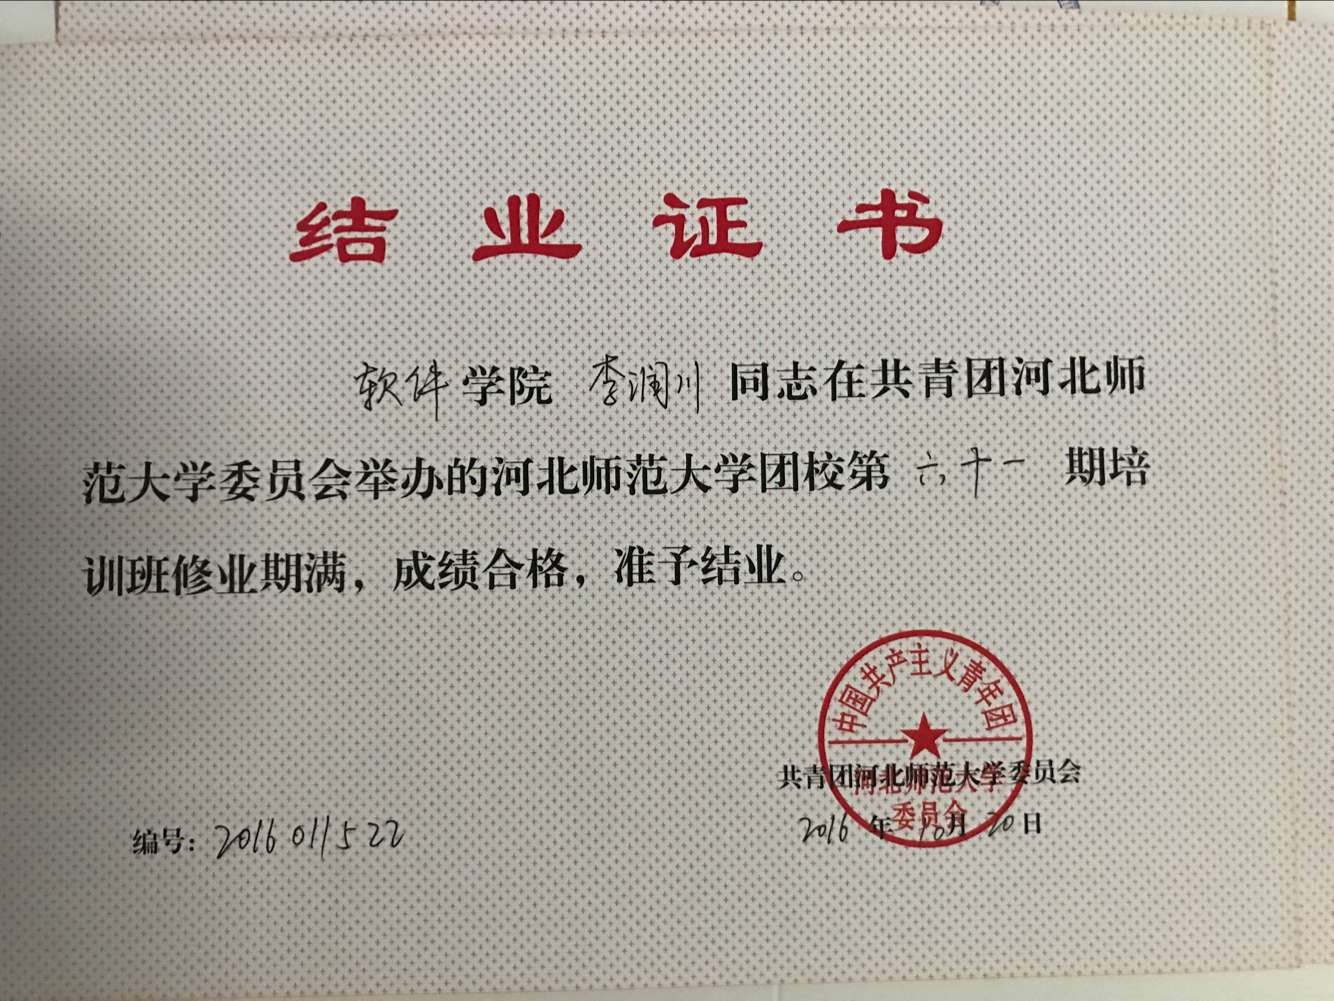 结业证书
软件学院 李润川 同志在共青团河北师
范大学委员会举办的河北师范大学团校第 六十一 期培
训班修业期满，成绩合格，准予结业。
中国共产主义青年团
河北师范大学
委员会
共青团河北师范大学委员会
2016年10月20日
编号：2016011522